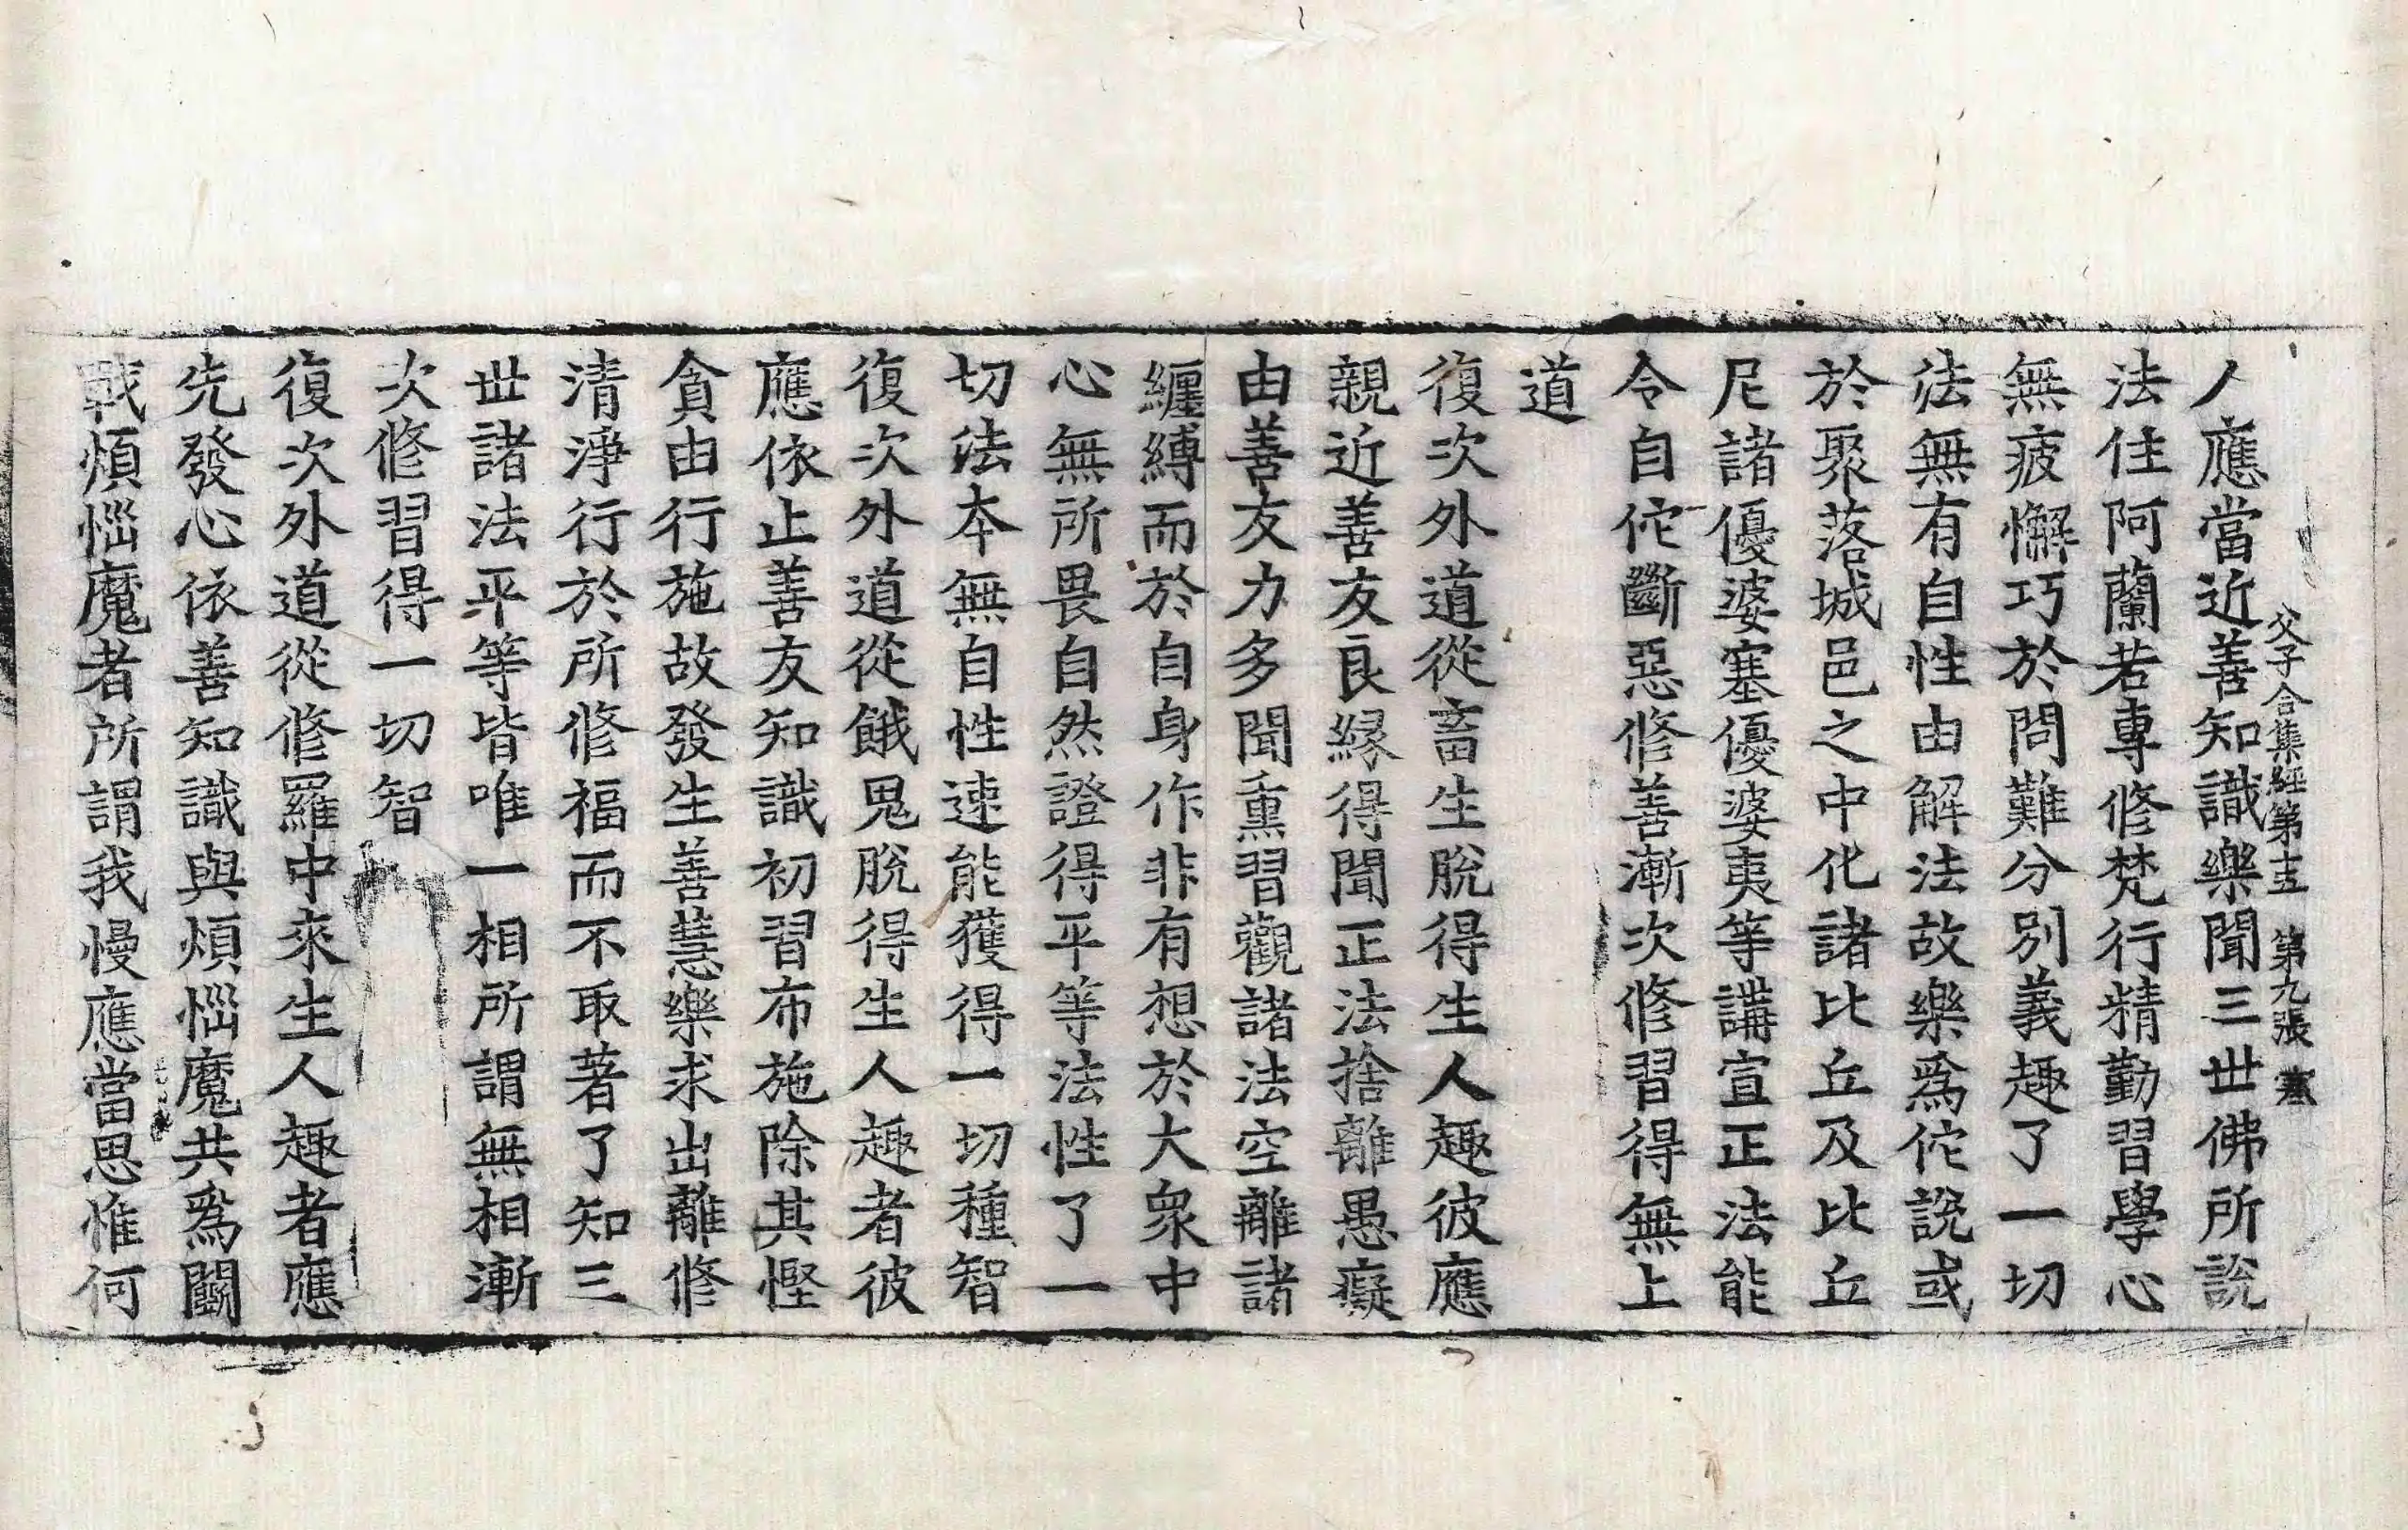 父子合集經第十五 第九張 寒
人應當近善知識樂聞三世佛所說
法住阿蘭若專修梵行精勤習學心
無疲懈巧於問難分別義趣了一切
法無有自性由解法故樂爲佗說或
於聚落城邑之中化諸比丘及比丘
尼諸優婆塞優婆夷等講宣正法能
令自佗斷惡修善漸次修習得無上
道
復次外道從畜生脫得生人趣彼應
親近善友良緣得聞正法捨離愚癡
由善友力多聞熏習觀諸法空離諸
纏縛而於自身作非有想於大衆中
心無所畏自然證得平等法性了一
切法本無自性速能獲得一切種智
復次外道從餓鬼脫得生人趣者彼
應依止善友知識初習布施除其慳
貪由行施故發生善慧樂求出離修
清淨行於所修福而不取著了知三
世諸法平等皆唯一相所謂無相漸
次修習得一切智
復次外道從修羅中來生人趣者應
先發心依善知識與煩惱魔共爲鬭
戰煩惱魔者所謂我慢應當思惟何